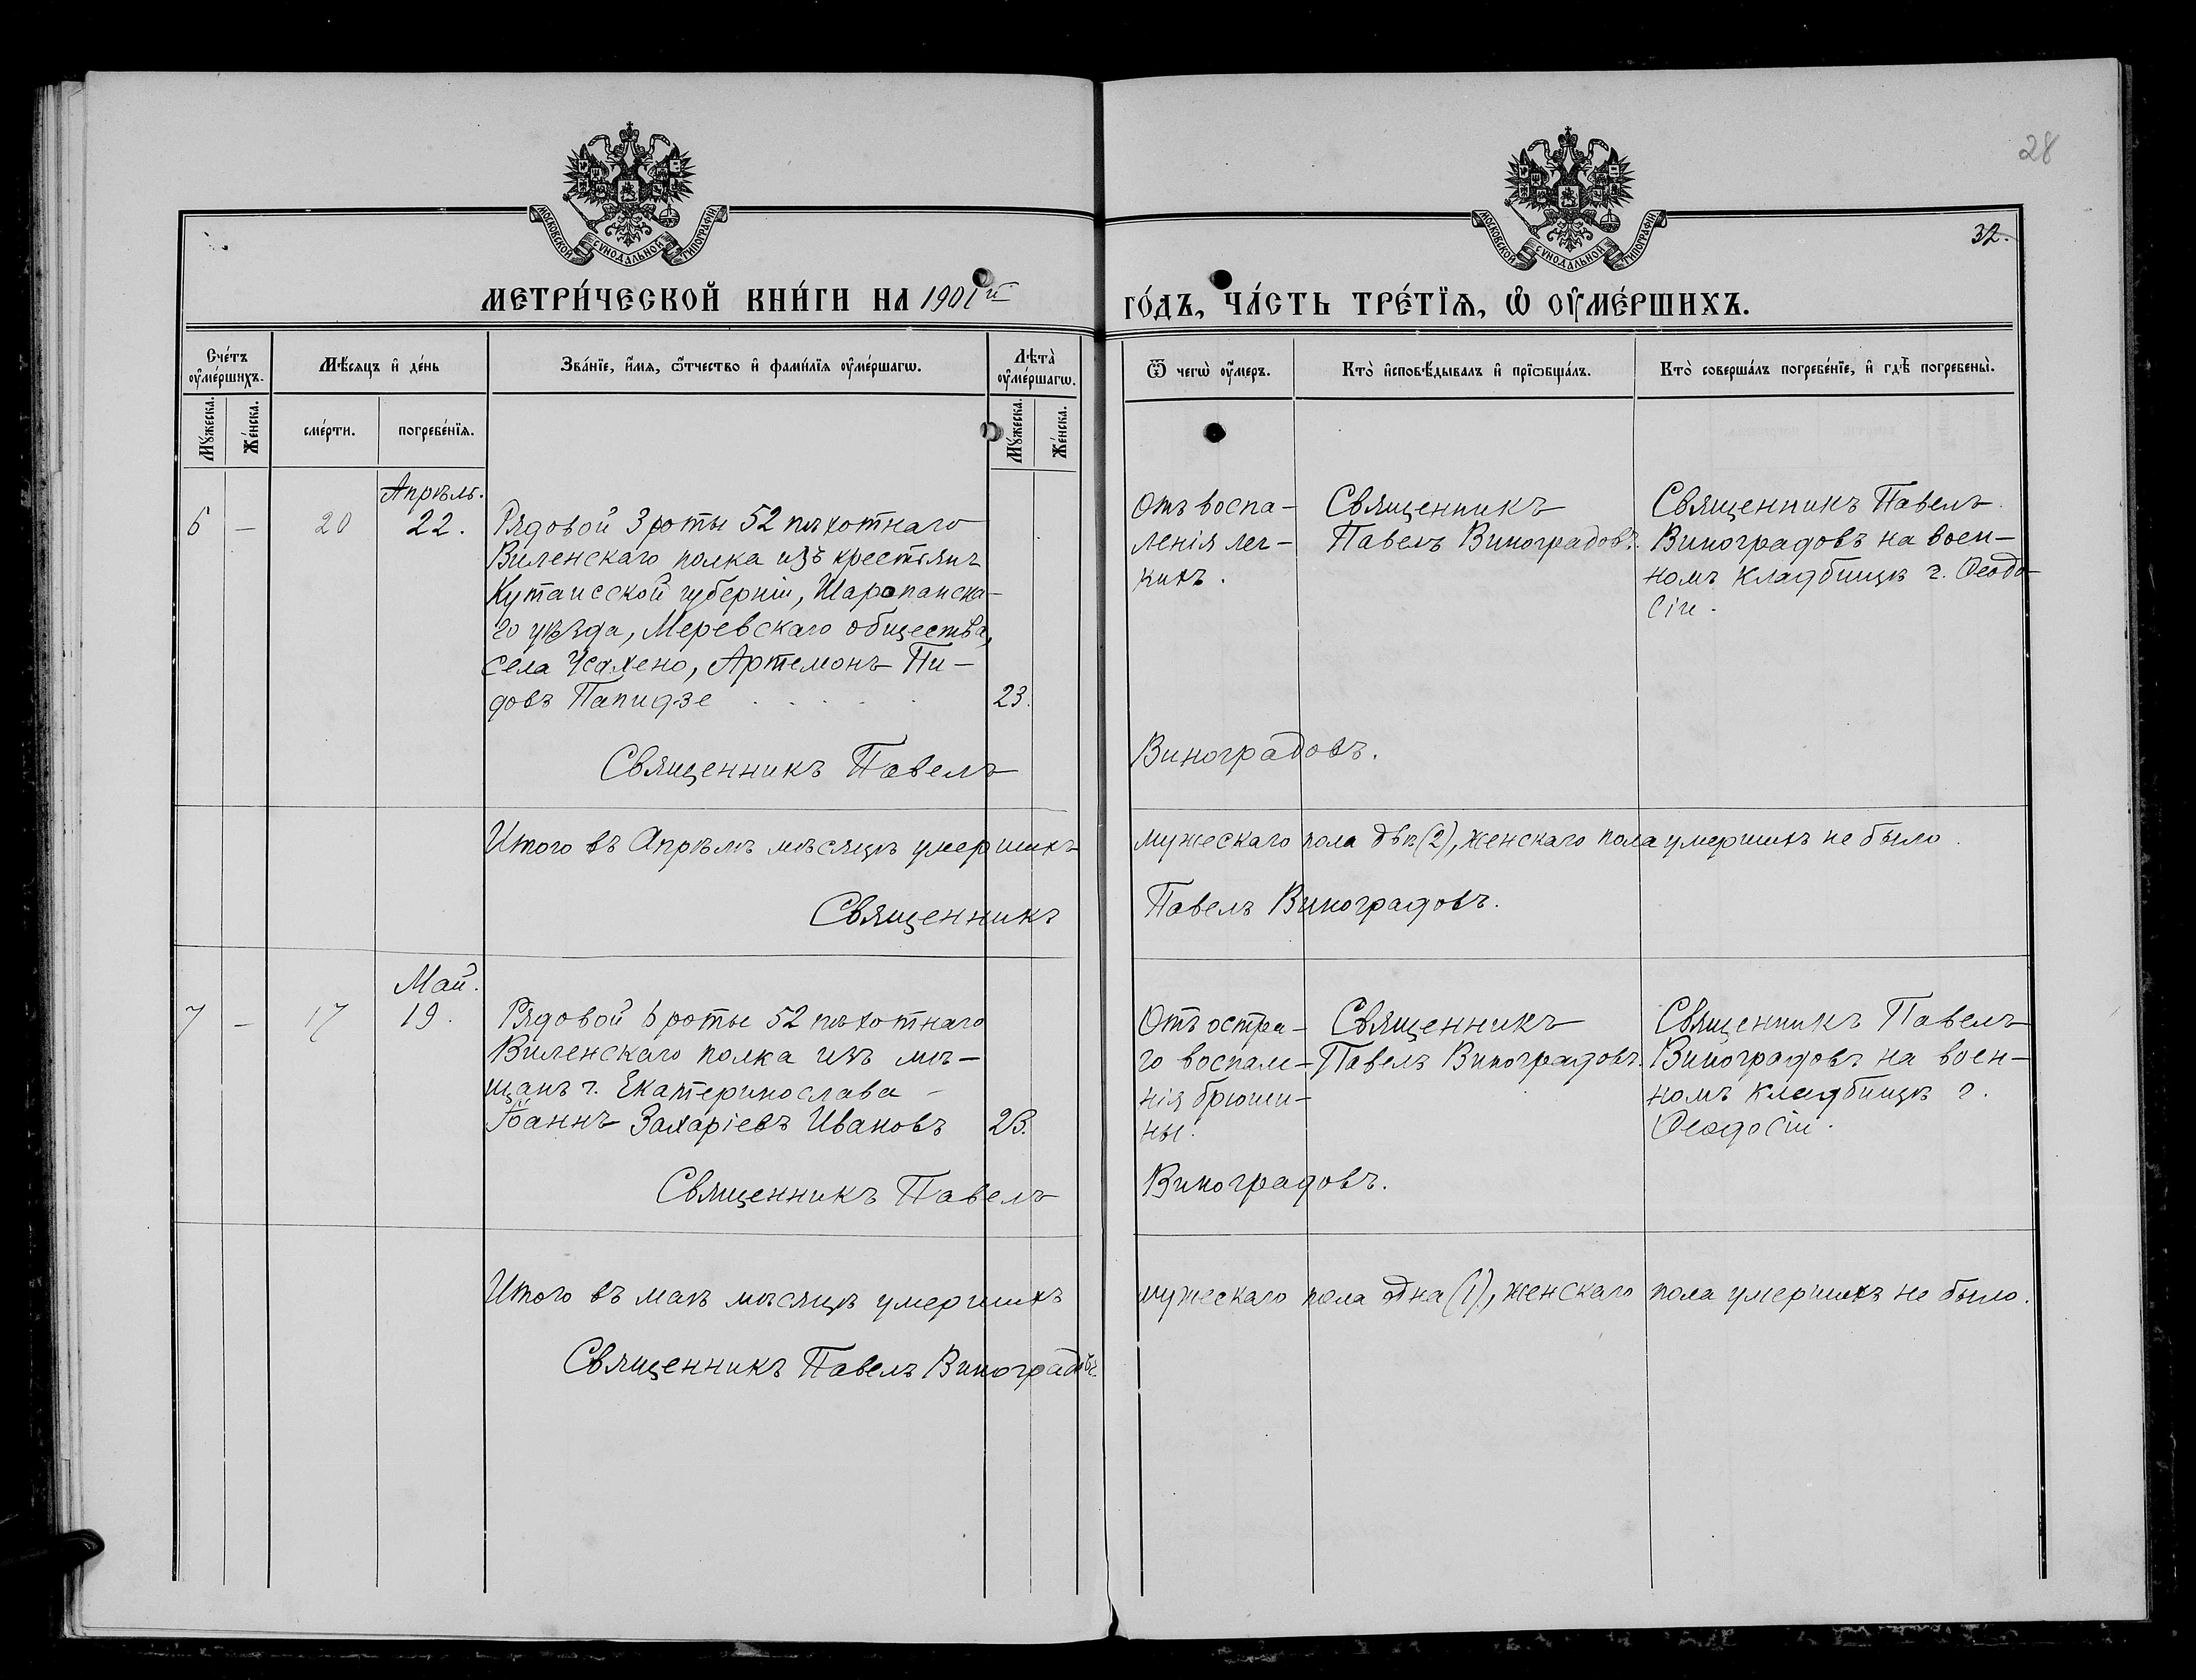 28
32.
МОСКОВСКОЙ СѴНОДАЛЬНОЙ ТИПОГРАФІИ
МОСКОВСКОЙ СѴНОДАЛЬНОЙ ТИПОГРАФІИ
МЕТРИ́ЧЕСКОЙ КНИ́ГИ НА 1901й
ГО́ДЪ, ЧА́СТЬ ТРЕ́ТЇѦ, Ѡ҆ ОУ҆МЕ́РШИХЪ.
Сче́тъ оу҆ме́ршихъ.
Мѣ́сяцъ и҆ де́нь
Зва́нїе, и҆́мя, ѻ҆́тчество и҆ фами́лїя оу҆ме́ршагѡ.
Лѣта̀ оу҆ме́ршагѡ.
Ѿ чегѡ̀ оу҆́меръ.
Кто̀ и҆сповѣ́дывалъ и҆ прїѡбща́лъ.
Кто̀ соверша́лъ погребе́нїе, и҆ гдѣ̀ погребены̀.
Мꙋ́жеска.
Же́нска.
сме́рти.
погребе́нїя.
Мꙋ́жеска.
Же́нска.
Апрѣль.
6 — 20 22. Рядовой 3 роты 52 пѣхотнаго
Виленскаго полка изъ крестьянъ
Кутаисской губерніи, Шаропанска-
го уѣзда, Меревскаго общества,
села Чалхено, Артемонъ Пи-
довъ Папидзе . . . . . 23.
Отъ воспа-
ленія лег-
кихъ.
Священникъ
Павелъ Виноградовъ.
Священникъ Павелъ
Виноградовъ на воен-
номъ кладбищѣ г. Ѳеодо-
сіи.
Священникъ Павелъ Виноградовъ.
Итого въ Апрѣлѣ мѣсяцѣ умершихъ мужескаго пола два (2), женскаго пола умершихъ не было.
Священникъ Павелъ Виноградовъ.
Май.
7 — 17 19. Рядовой 6 роты 52 пѣхотнаго
Виленскаго полка изъ мѣ-
щанъ г. Екатеринослава
Іоаннъ Захаріевъ Ивановъ 23.
Отъ остра-
го воспале-
нія брюши-
ны.
Священникъ
Павелъ Виноградовъ.
Священникъ Павелъ
Виноградовъ на воен-
номъ кладбищѣ г.
Ѳеодосіи.
Священникъ Павелъ Виноградовъ.
Итого въ маѣ мѣсяцѣ умершихъ мужескаго пола одна (1), женскаго пола умершихъ не было.
Священникъ Павелъ Виноградовъ.